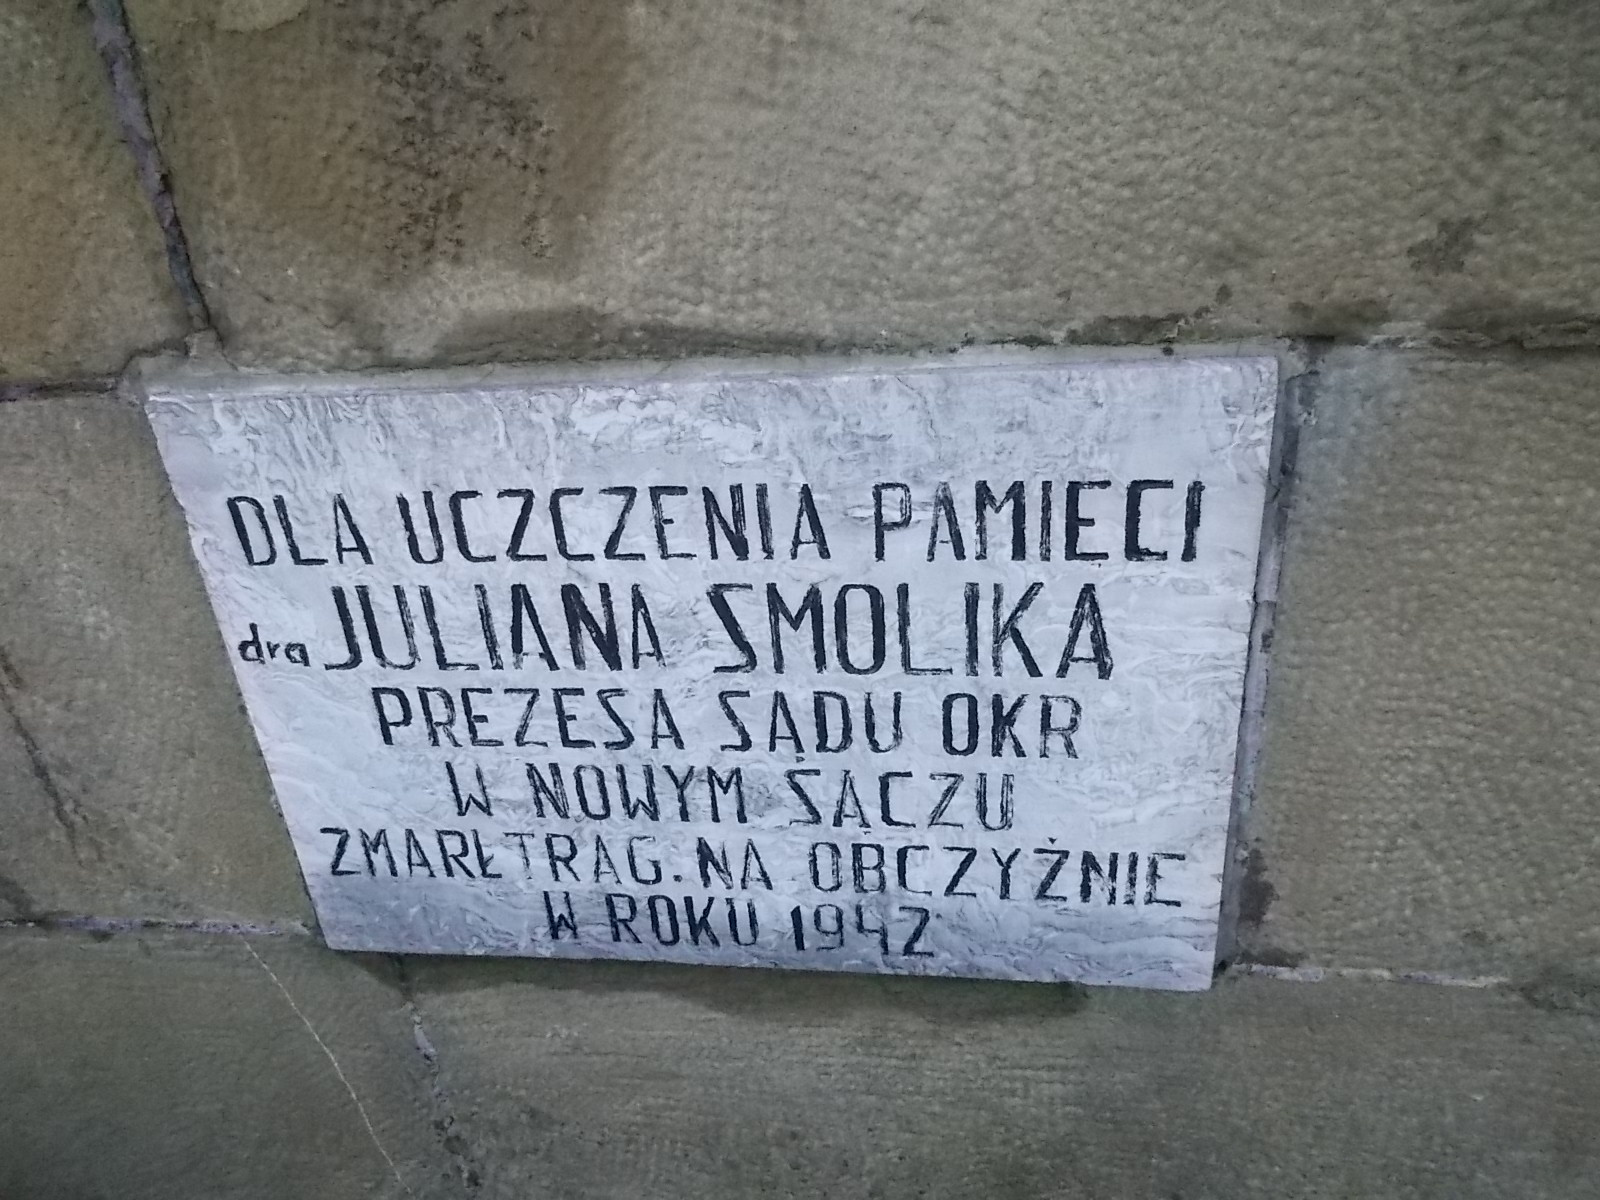 DLA UCZCZENIA PAMIĘCI
dra JULIANA SMOLIKA
PREZESA SĄDU OKR
W NOWYM SĄCZU
ZMARŁ TRAG. NA OBCZYŹNIE
W ROKU 1942